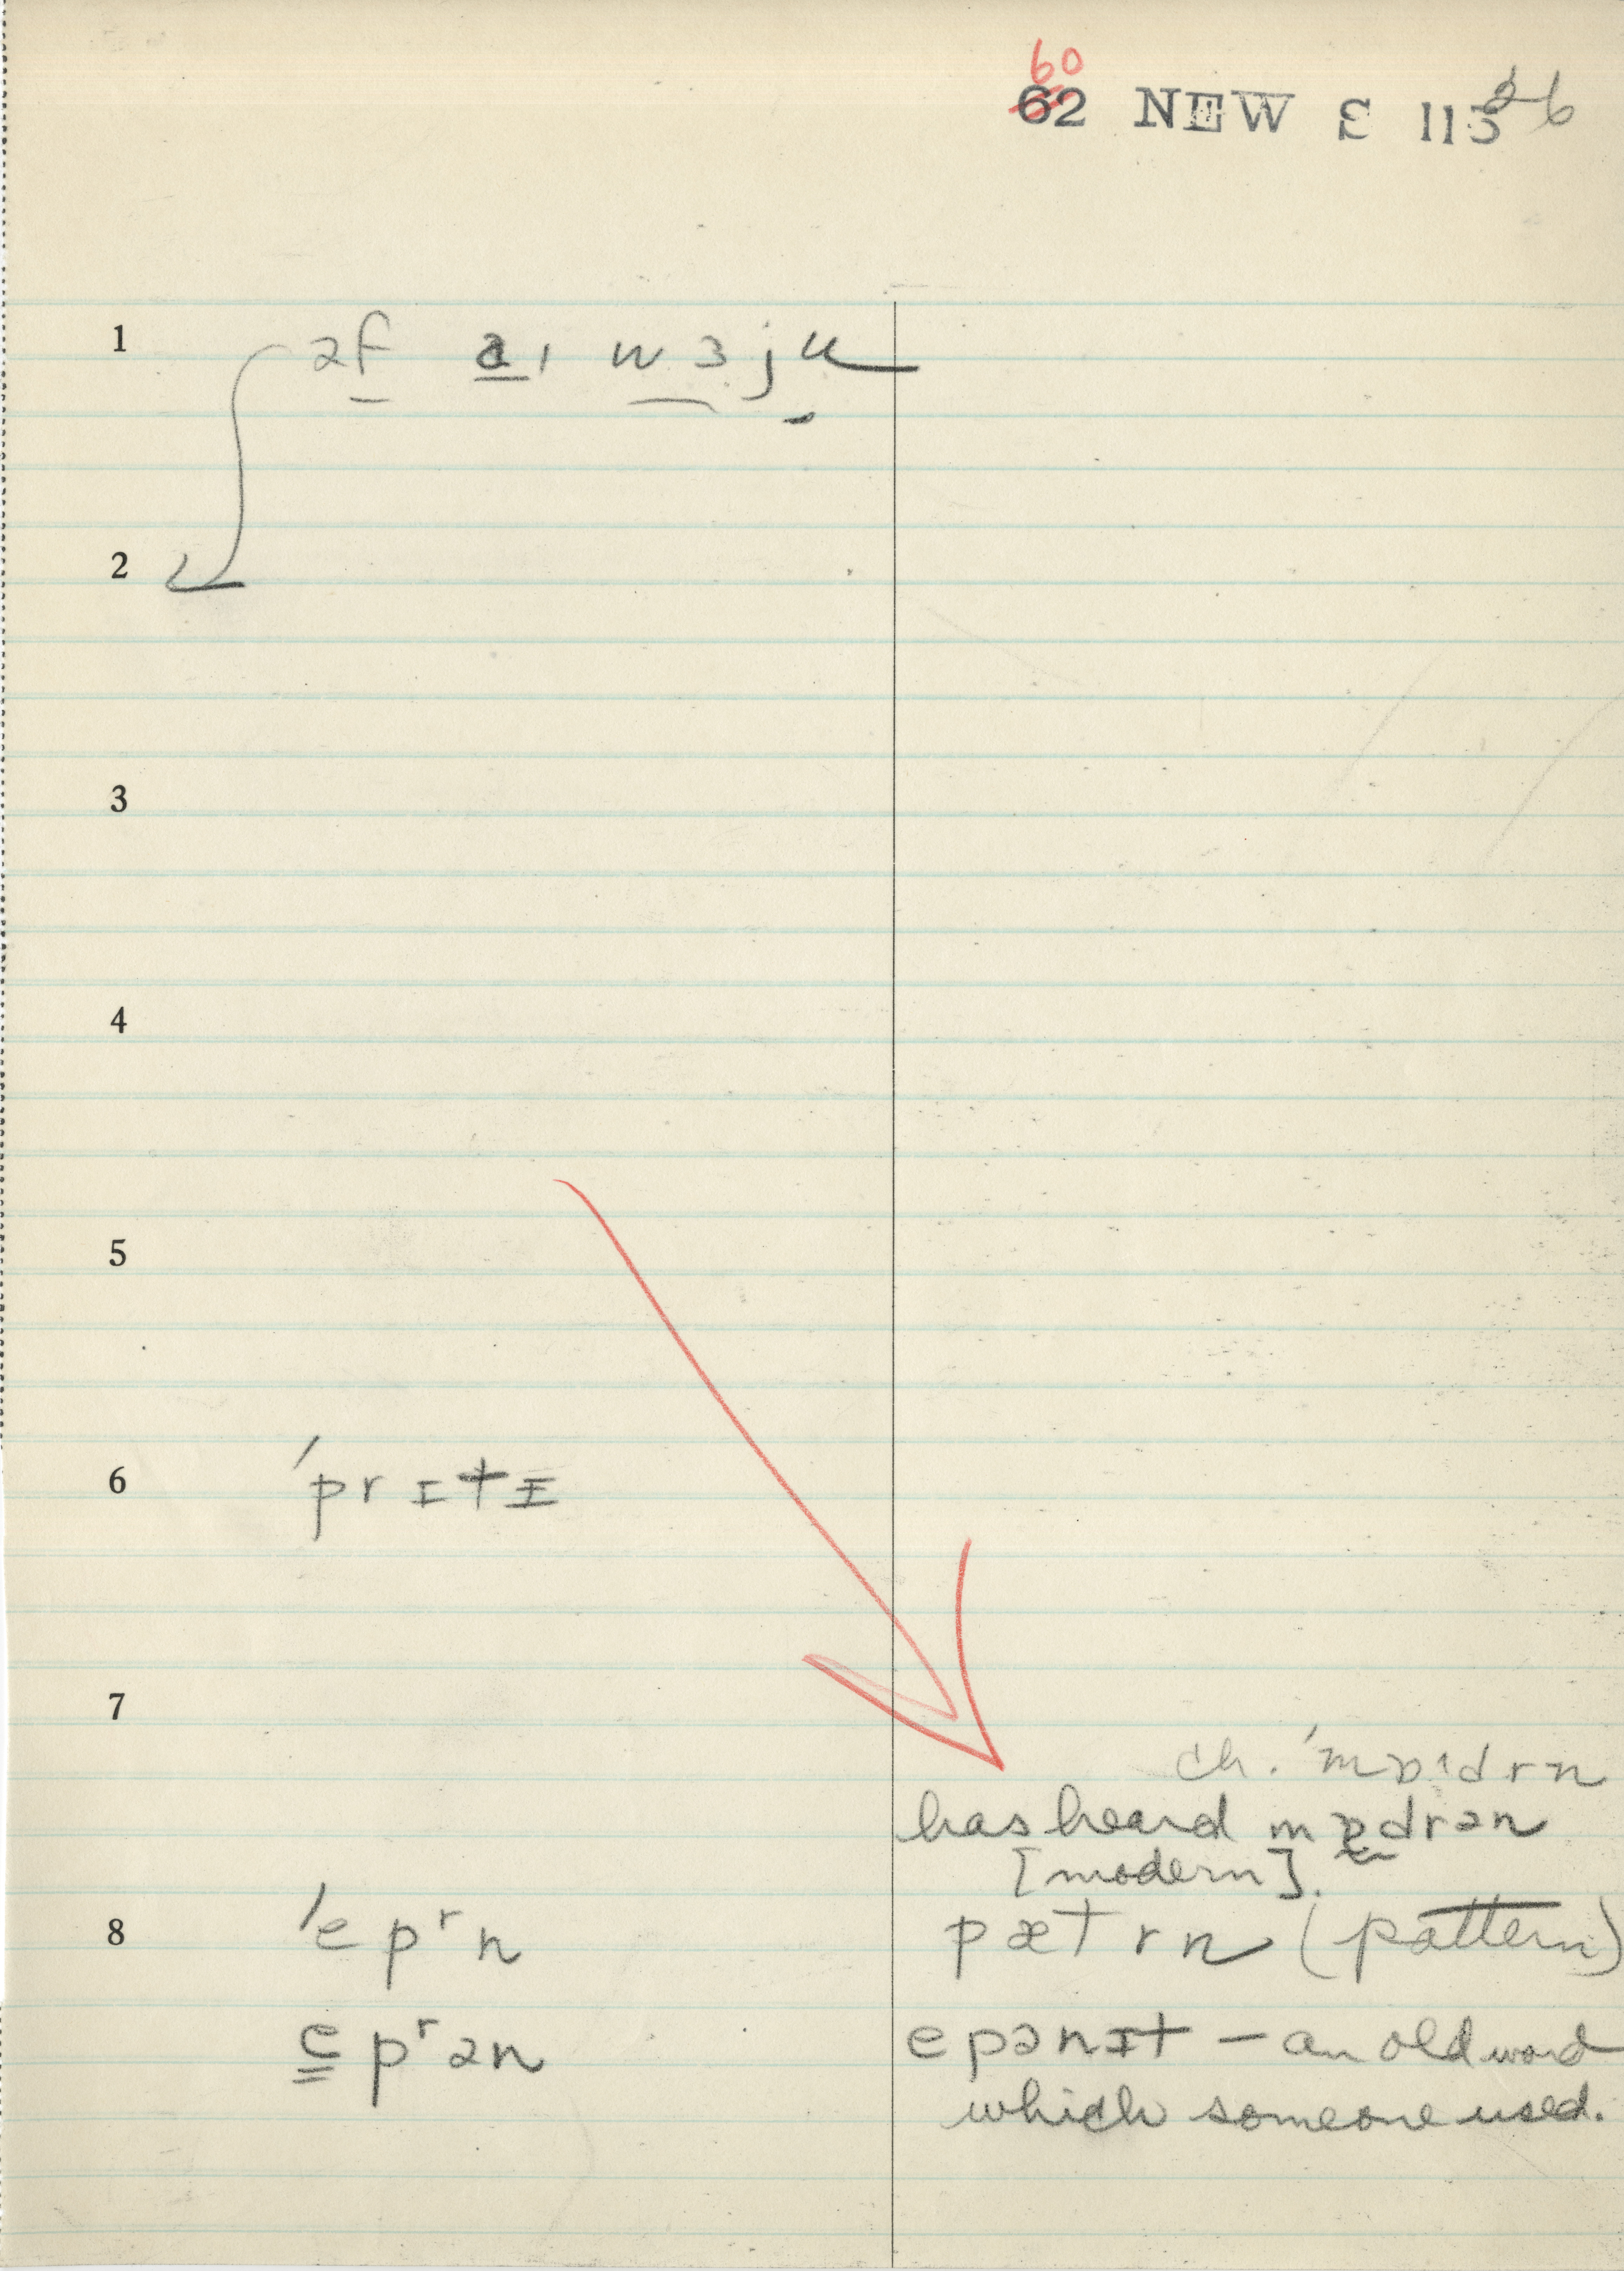 60
62 NEW S 113 26
1 əf aɪ wɜju
2
3
4
5
6 ˈprɪtɪ
7
ch. ˈmɒˑdrn
has heard mɒdrən
[modern].
8 ˈepʳn pætrn (pattern)
epʳən epənɪt – an old word
which someone used.